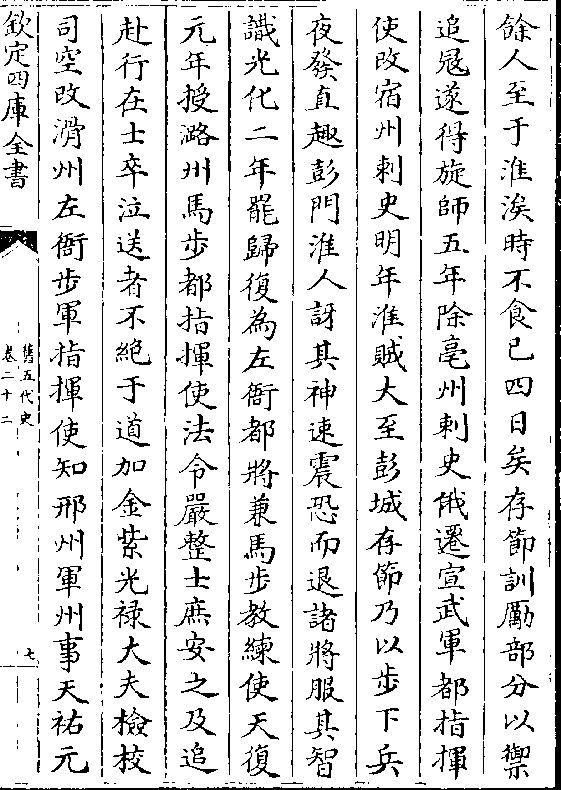 餘人至于淮涘時不食已四日矣存節訓勵部分以禦
追冦遂得旋師五年除亳州刺史俄遷宣武軍都指揮
使改宿州刺史明年淮賊大至彭城存節乃以步下兵
夜發直趣彭門淮人訝其神速震恐而退諸將服其智
識光化二年罷歸復為左衙都將兼馬步教練使天復
元年授潞州馬步都指揮使法令嚴整士庶安之及追
赴行在士卒泣送者不絶于道加金紫光禄大夫檢校
司空改滑州左衙步軍指揮使知邢州軍州事天祐元
欽定四庫全書
舊五代史
卷二十二
七